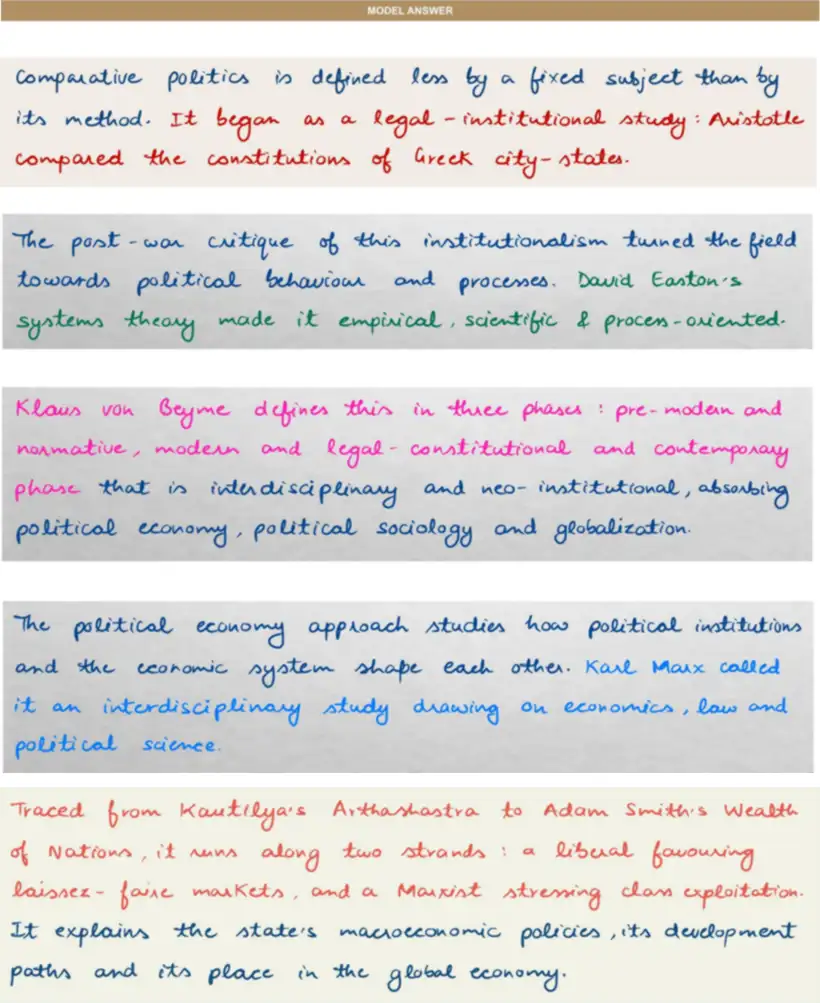 MODEL ANSWER
Comparative politics is defined less by a fixed subject than by
its method. It began as a legal-institutional study: Aristotle
compared the constitutions of Greek city-states.
The post-war critique of this institutionalism turned the field
towards political behaviour and processes. David Easton's
systems theory made it empirical, scientific & process-oriented.
Klaus von Beyme defines this in three phases: pre-modern and
normative, modern and legal-constitutional and contemporary
phase that is interdisciplinary and neo-institutional, absorbing
political economy, political sociology and globalization.
The political economy approach studies how political institutions
and the economic system shape each other. Karl Marx called
it an interdisciplinary study drawing on economics, law and
political science.
Traced from Kautilya's Arthashastra to Adam Smith's Wealth
of Nations, it runs along two strands: a liberal favouring
laissez-faire markets, and a Marxist stressing class exploitation.
It explains the state's macroeconomic policies, its development
paths and its place in the global economy.